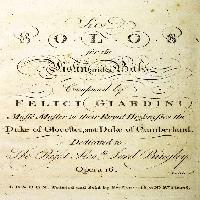 Six
SOLOS
for the
Violin and a Bass
Composed by
FELICE GIARDINI
Music Master to their Royal Highnesses the
Duke of Glocester, and Duke of Cumberland.
Dedicated to
The Right Hon.ble Lord Bingley
Opera 16.
LONDON Printed and Sold by